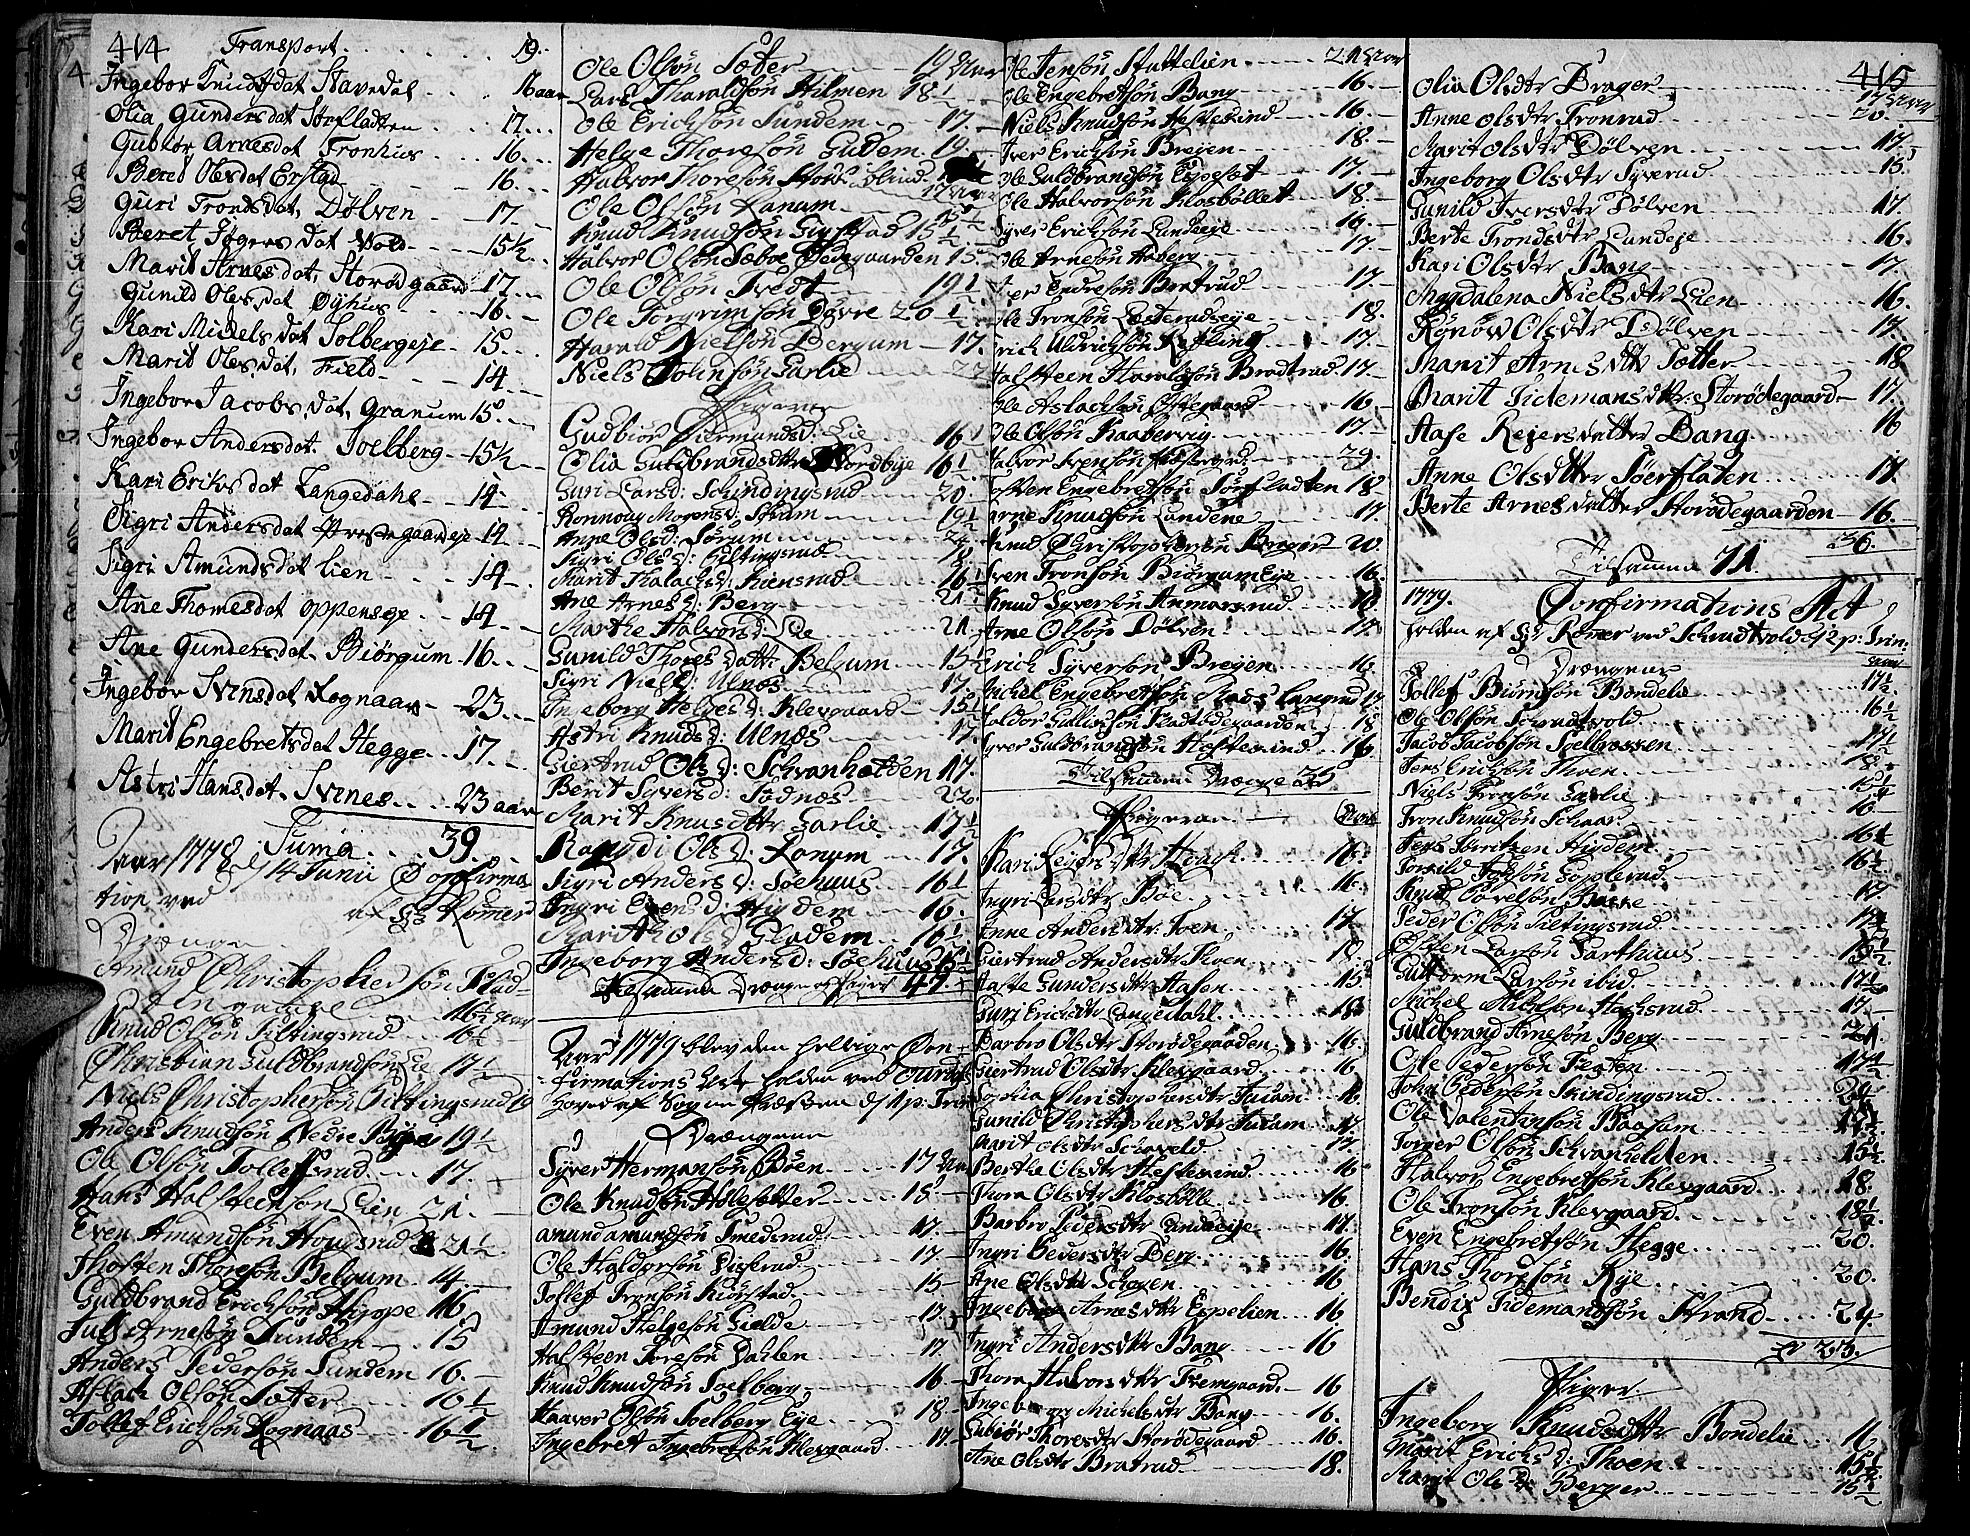 414 Transport. . . . . . 19.
Ingebor Knudsdat Stavedal . . . 16 aar
Olia Gundersdat Sørfladten . . 17 . . .
Gubiør Arnesdat Tronhus . . . 16 . . .
Bered Olesdat Erstad . . . 16 . . .
Guri Tronds dat, Dølven - - 17 . . .
Beret Jøgers dat Vold - - - 15½ . . .
Marit Arnes dat, Storødgaard 17 . . .
Gunild Oles dat Øyhus . . . 16 . . .
Kari Mickels dat Solbergeje - 15 . . .
Marit Oles dat, Field - - - 14 . . .
Ingebor Jacobs dat, Granum 15 . . .
Ingebor Anders dat. Soelberg - 15½ - -
Kari Eriks dat Langedahl - 14 -
Sigri Anders dat Præstegaardeje 14 -
Sigri Amunds dat Lien - - - 14 -
Ane Thomesdat Oppenseje - - 14 -
Ane Gundersdat. Biørgum - 16 . . .
Ingebor Svensdat Rognaas - 23 . . .
Marit Engebretsdat Hegge . . 17 . . .
Astri Hansdat. Svenes . . . 23 aar
Suma . . 39. . .
Aar 1778 d/14 Junii Confirma
tion ved af Hr Rømer
Drænge
Amund Christophersøn
16½ Aar
Knud Olsøn Piltingsrud . . . 16½ -
Christian Guldbrandsøn Lie 17½
Niels Christophersøn Piltingsrud 19
Anders Knudsøn Nedre Bye 19½
Ole Olsøn Tollefsrud - - - 17. -
Hans Halsteensøn Lien 21. -
Even Amundsøn Hougsrud 21½
Thosten Thoresøn Belgum - 14. -
Guldbrand Ericksøn Hippe 16 -
Juls Arnesøn Sundem - . 15
Anders Pedersøn Sundem 16. -
Aslach Olsøn Sæter - - - 16½
Tollef Ericksøn Rognaas - - 16½
Ole Olsøn Sæter - - - - 19 Aar
Lars Tharaldsøn Hilmen 18½ -
Ole Ericksøn Sundem - - 17. -
Helge Thoresøn Gudem. 19. -
Halvor Thoresøn ibid.
Ole Olsøn Ranum - - - 17 Aar
Knud Knudsøn Gigstad 15½
Halvor Olsøn Sæboe Ødegaarden 15 -
Ole Olsøn Tvedt - - - 19½
Ole Torgrimsøn Døvre 20½
Harald Nielsøn Bergum - 17.
Niels Johnsøn Garlie - - - 22
Pigerne
Gudbiør Giermunds d: Lie - - 16½
Olia Guldbrandsdttr Nordbye 16½
Guri Larsd: Schindingsrud - - 20. -
Ronnoug Mogens d: Strøm - - - 19½
Anne Olsd: Sørum - - - 24 -
Sigri Ols d: Piltingsrud - - 18
Marit Aslachs d: Kiensrud - - 16½
Ane Arnes d: Berg - - - 21½
Marthe Halvors d: Lie - - - 21
Gunild Thores Datt: Belgum - - 15½
Sigri Niels d: Ulnæs - - - 17.
Ingeborg Helges d: Klevgaard - 15½
Astri Knuds d: Ulnæs - - - 17.
Giertrud Ols d: Schvanhølden 17.
Berit Syvers d: Sødnæs - - - 22.
Marit Knusdttr Garlie - - - 17½
Rangdi Ols d: Ranum - - 17.
Sigri Anders d: Søehuus - - 16½
Ingri Evens d: Hysdem - - 16.
Marit Ols d: Gladem - - 16½
Ingeborg Anders d: Søehuus 16½
Tilsamen Drænge og Piger 47.
Aar 1779 blev den hellige Con-
firmations Act holden ved Aurdals
Hoved af Sogne Præsten d/1 p: Trin:
Drængene
Syver Hermansøn Bøen - - - 17 Aar
Ole Knudsøn Holesetter - - - - 18 -
Amund Amundsøn Smedsrud - - - 17. -
Ole Haldorsøn Diserud - - - 17 -
Tollef Tronsøn Kiørstad - - - 15
Amund Helgesøn Gielde - - - 17.
Halsteen Toresøn Dahlen - - - 17
Knud Knudsøn Soelberg - - - 16 -
Haavor Olsøn Soelberg Eje - - - 18 -
Ingebret Ingebretsøn Klevgaard - - 17. -
Ole Jensøn Stuttelien - - - 21 Aar
Ole Engebretsøn Bang - - - - 16. -
Niels Knudsøn Hestesind - - - 16. -
Iver Ericksøn Breien - - - - 18. -
Ole Guldbrandsøn Espeset - - - 17. -
Ole Halvorsøn Klosbøllet - - 18. -
Syver Ericksøn Lundeeje - - - - 16. -
Ole Arnesøn Aaberg - - - - - 17. -
Iver Endresøn Bratrud - - - - 17. -
Ole Tronsøn - - - - 18.
Erich Uldrichsøn Kiøfling - - 17. -
Halsteen Haraldsøn Bradtrud. 17. -
Ole Aslachsøn Østegaard - - - 16. -
Ole Olsøn Raabervig - - - 17. -
Halvor Svensøn - - 29.
Tosten Engebretsøn Sørfladten 18. -
Arne Knudsøn Lundene - - - 17.
Knud Christophersøn Breger - 20. -
Sven Tronsøn Biørgum Eje - - - 16. -
Knud Syversøn Anmarsrud - - 18.
Arne Olsøn Dølven - - - - 17. -
Erich Syversøn Breien - - - 16. -
Michel Engebretsøn 17.
Haldor Gulliksøn 18
Syver Guldbrandsøn Hestesind - - 16.
Tilsamen Drænge 35
Pigerne - Aar
Kari Rejersdttr Hougs - - - 16.
Ingri Larsdttr Bøe - - - - 16.
Anne Andersdttr: Toen - - - 17.
Giertrud Andersdttr Thoen - - - 18.
Aaste Gundersdttr Aasen - - - 15.
Guri Erichsdttr Langedahl - - - 18.
Barbro Olsdttr Storødegaaden - - 16.
Giertrud Olsdttr Klevgaard - - - 16
Sophia Christophersdttr Fucam - - 16.
Gunild Christophersdttr Fucam - 17.
Marit Olsdttr Schaveld - - - 17.
Berthe Olsdttr Hestesind - - - 16
Thora Olsdttr Klosbølle - - - 16.
Barbro Pedersdttr Lundeeje - - 17.
Ingri Pedersdttr Berg - - - - 16.
Ane Olsdttr Schogen - - - - 16
Ingebor Arnesdttr Espelien - - 16.
Ingri Andersdttr Bang - - - 16
Thora Halvorsdttr Fremgaard - - 16
Ingeborg Michelsdttr Bang - - - 16.
Gubiør Thoresdttr Storødegaard - - 16.
Ane Olsdttr Bratrud - - - - 18.
415
Olia Olsdttr Breger - - - - 17 Aar
Anne Olsdttr Tronrud - - - - 20.
Marit Olsdttr Dølven - - - 17.
Ingeborg Olsdttr Syverud - - - 15.
Gunild Iversdttr Dølven - - - 17.
Berte Trondsdttr Lundeje - - - 16.
Kari Olsdttr Bang - - - - 17.
Magdalena Nielsdttr Lien - - - 16.
Rønøw Olsdttr Dølven - - - 17.
Marit Arnesdttr Sætter - - - - 18
Marit Tidemansdttr Storødegaard - 17.
Aase Rejersdatter Bang - - - - 16
Anne Olsdttr Søerfladen - - - 17.
Berte Arnesdatter Storødegaarden - 16.
36.
Tilsamen 71.
1779. Confirmations Act
holden af Hr Rømer ved Schrudtvold d/2 p: Trin:
Drængene Aar
Tollef Biørnsøn Bondelie - - - 17½
Ole Olsøn Schrudtvold - - - - 16½
Jacob Jacobsøn Soelbrossen - - - 17½
Jens Ericksøn Thoen - - - - 18. -
Niels Tronsøn Garlie - - - - 15½
Tron Knudsøn Schaar - - - - 16.
Jens Høritzen Hysdem - - - - 16½
Torkild - - - 16½
Knud Povelsøn - - - 17.
Peder Olsøn Piltingsrud - - - 17½
Østen Larsøn Garthuus - - - 15½
Guttorm Larsøn ibid. - - - 17½
Michel Nielsøn - - - 17. -
Guldbrand Arnesøn Berg - - - 21.
Ole Pedersøn - - - 17½
John Pedersøn Skindingsrud - - - 24.
Ole Valentinsøn Baagam - - - 18½
Torger Olsøn Schvanhelden - - - 15½
Halvor Engebretsøn Klevgaard . . . 18.
Ole Tronsøn Klevgaard - - - 18½
Even Engebretsøn Hegge - - - 20.
Hans Thoresøn Rye - - - - 20.
Bendix Tidemandsøn Strand - - - 24.
23
Piger
Ingeborg Knudsdttr Bondelie . . 16
Marit Erichs d: Thoen . . . . 15½
Marit Ols d: Berger . . . . . 15½